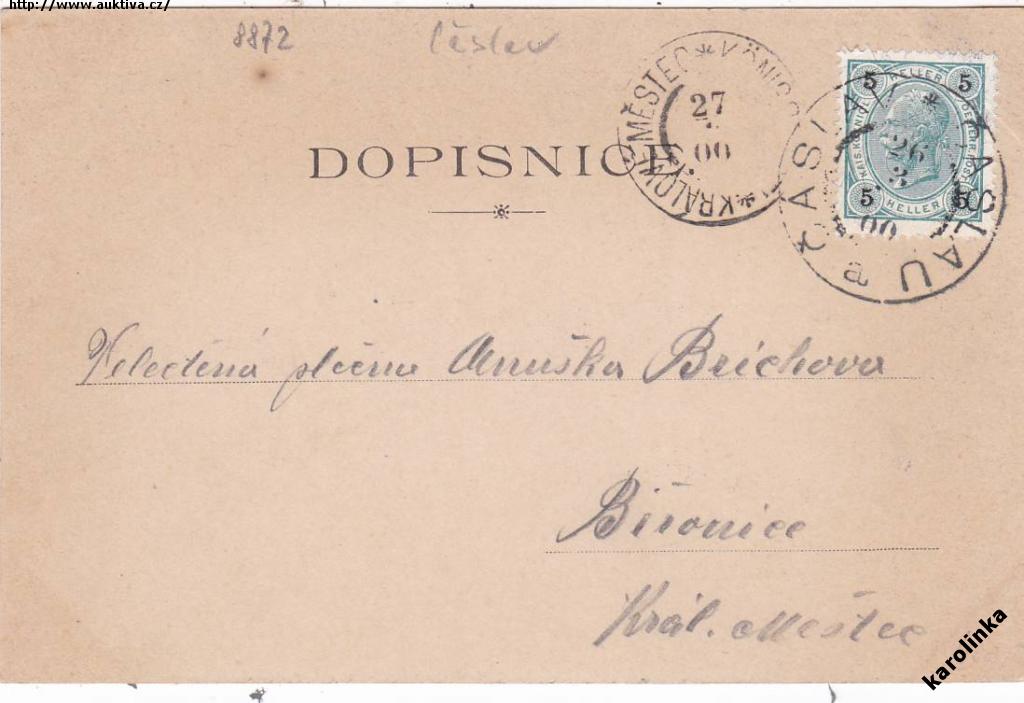 http://www.auktiva.cz/
8872 Čáslav
DOPISNICE
KRÁLOVÉ MĚSTEC * KÖNIGS
27
00
ČÁSLAV * ČASLAU
26
3
00
a
5 HELLER 5
KAIS. KÖNIGL. OESTERR. POST
5 HELLER 5
Velectěná slečna Anuška Brichova
Běronice
Král. Městec
karolinka